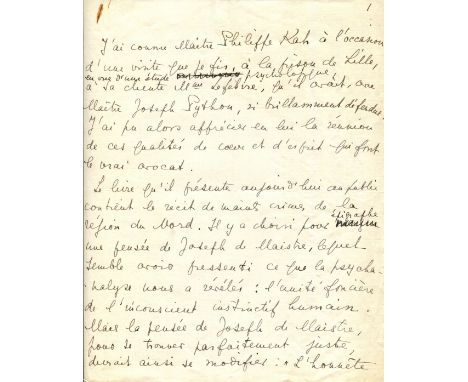 1
J'ai connu Maître Philippe Kah à l'occasion
d'une visite que je fis, à la prison de Lille,
en vue d'une étude psychologique,
à sa cliente Mme Lefebvre, qu'il avait, avec
Maître Joseph Python, si brillamment défendue.
J'ai pu alors apprécier en lui la réunion
de ces qualités de cœur et d'esprit qui font
le vrai avocat.
Le livre qu'il présente aujourd'hui au public
contient le récit de maints crimes de la
épigraphe
région du Nord. Il y a choisi pour
une pensée de Joseph de Maistre, lequel
semble avoir pressenti ce que la psycha-
nalyse nous a révélés : l'unité foncière
de l'inconscient instinctif humain.
Mais la pensée de Joseph de Maistre,
pour se trouver parfaitement juste,
devrait ainsi se modifier : "L'honnête